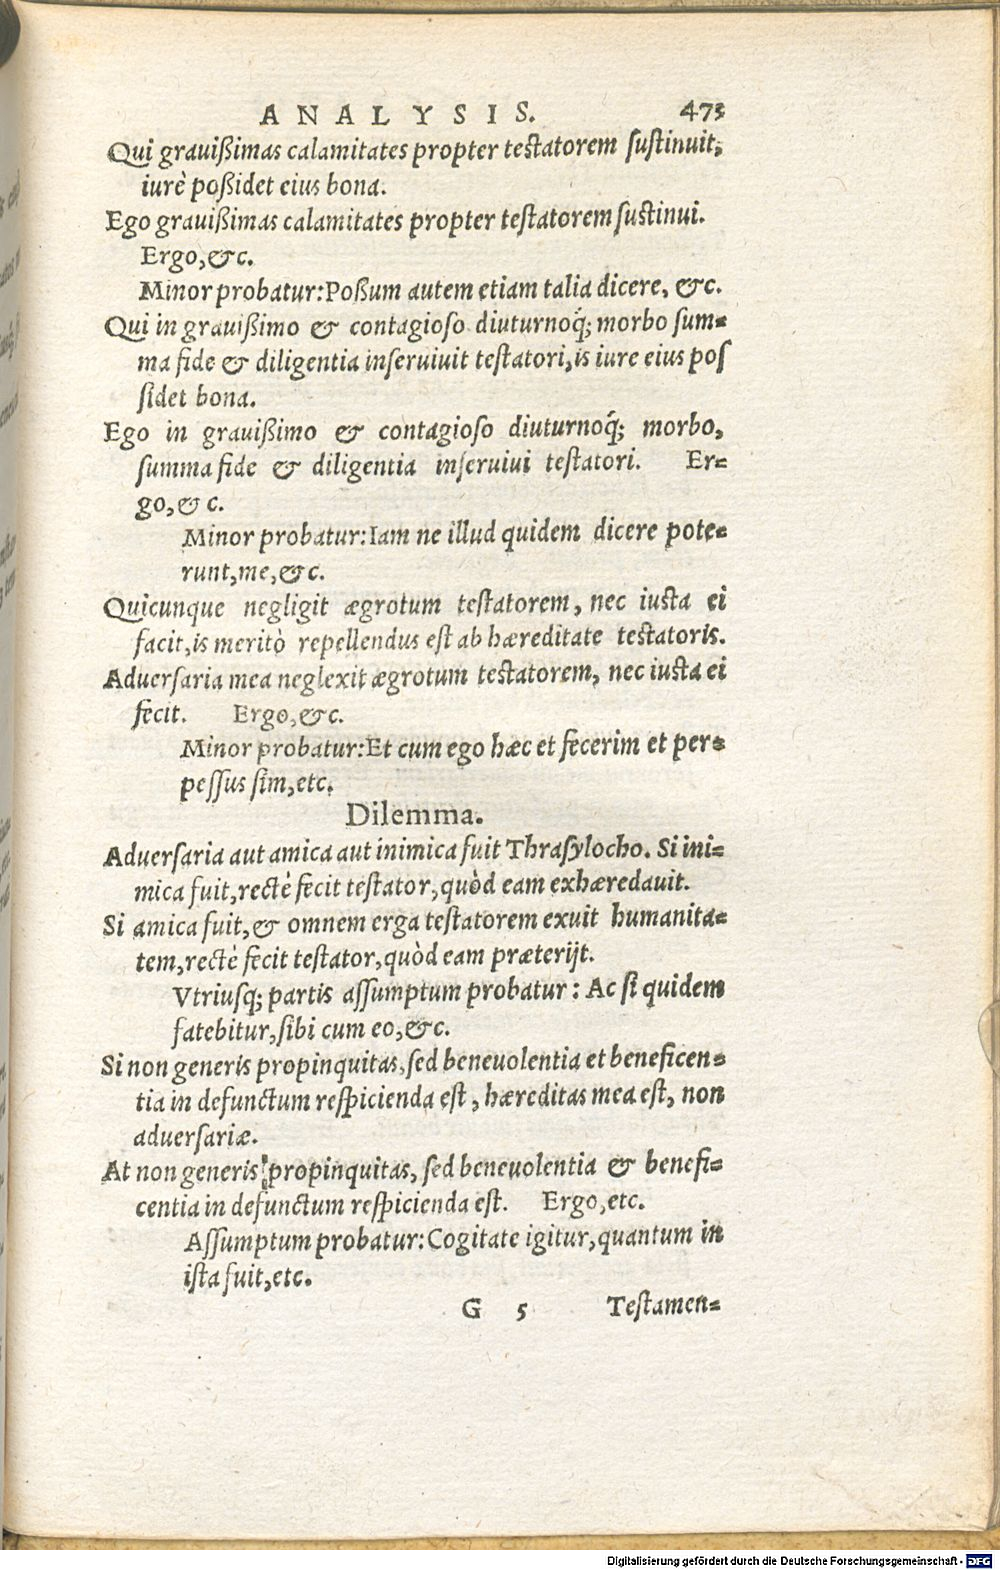 ANALYSIS. 473
Qui grauißimas calamitates propter testatorem sustinuit,
iurè poßidet eius bona.
Ego grauißimas calamitates propter testatorem sustinui.
Ergo, &c.
Minor probatur: Poßum autem etiam talia dicere, &c.
Qui in grauißimo & contagioso diuturnoq́; morbo sum-
ma fide & diligentia inseruiuit testatori, is iure eius pos
sidet bona.
Ego in grauißimo & contagioso diuturnoq́; morbo,
summa fide & diligentia inseruiui testatori. Er-
go, & c.
Minor probatur: Iam ne illud quidem dicere pote-
runt, me, &c.
Quicunque negligit ægrotum testatorem, nec iusta ei
facit, is meritò repellendus est ab hæreditate testatoris.
Aduersaria mea neglexit ægrotum testatorem, nec iusta ei
fecit. Ergo, &c.
Minor probatur: Et cum ego hæc et fecerim et per-
pessus sim, etc.
Dilemma.
Aduersaria aut amica aut inimica fuit Thrasylocho. Si ini-
mica fuit, rectè fecit testator, quòd eam exhæredauit.
Si amica fuit, & omnem erga testatorem exuit humanita-
tem, rectè fecit testator, quòd eam præterijt.
Vtriusq; partis assumptum probatur: Ac si quidem
fatebitur, sibi cum eo, &c.
Si non generis propinquitas, sed beneuolentia et beneficen-
tia in defunctum respicienda est, hæreditas mea est, non
aduersariæ.
At non generis propinquitas, sed beneuolentia & benefi-
centia in defunctum respicienda est. Ergo, etc.
Assumptum probatur: Cogitate igitur, quantum in
ista fuit, etc.
G 5 Testamen-
Digitalisierung gefördert durch die Deutsche Forschungsgemeinschaft - DFG